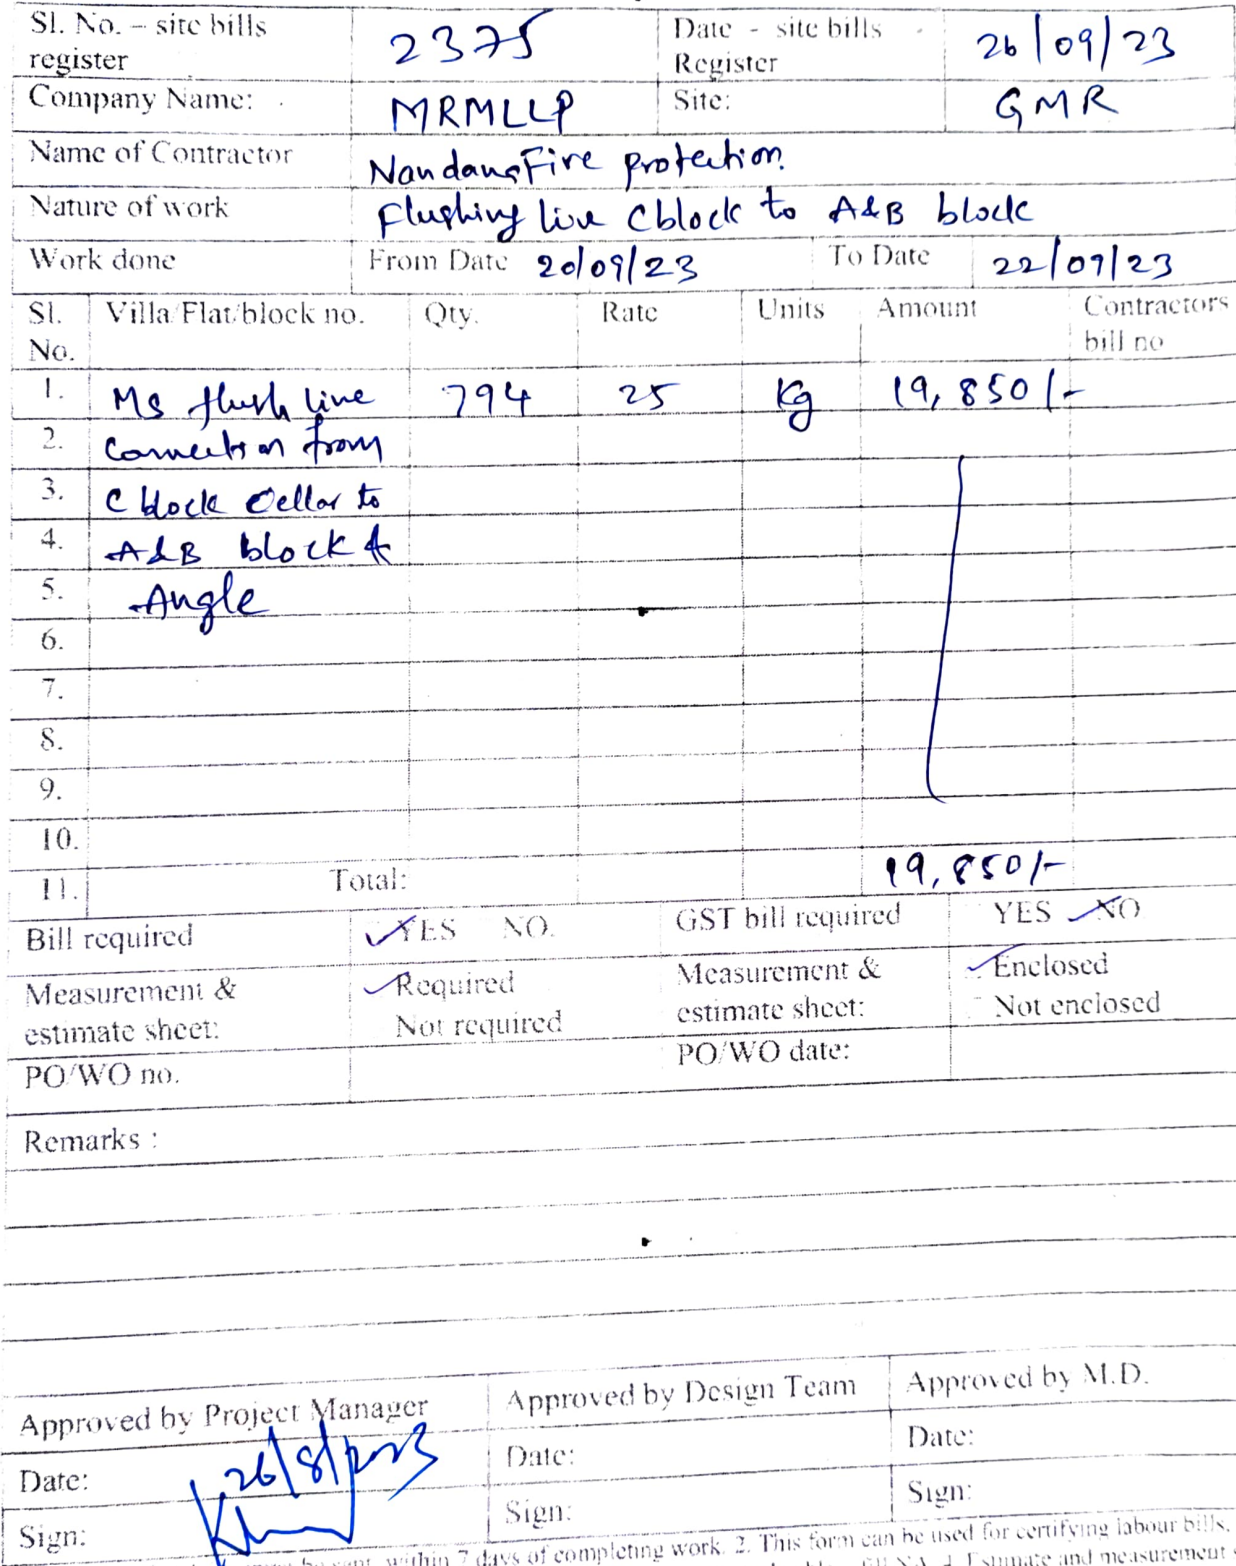 Sl. No. – site bills register 2375 Date - site bills Register 26/09/23
Company Name: MRMLLP Site: GMR
Name of Contractor Nandana Fire protection.
Nature of work Flushing line C block to A&B block
Work done From Date 20/09/23 To Date 22/09/23
Sl. No. Villa/Flat/block no. Qty. Rate Units Amount Contractors bill no
1. MS flush line 794 25 Kg 19,850/-
2. Connection from
3. C block Cellar to
4. A&B block &
5. Angle
6.
7.
8.
9.
10.
11. Total: 19,850/-
Bill required YES NO. GST bill required YES NO
Measurement & estimate sheet: Required Not required Measurement & estimate sheet: Enclosed Not enclosed
PO/WO no. PO/WO date:
Remarks :
Approved by Project Manager Approved by Design Team Approved by M.D.
Date: 26/8/2023 Date: Date:
Sign: Sign: Sign:
within 7 days of completing work. 2. This form can be used for certifying labour bills.
Estimate and measurement